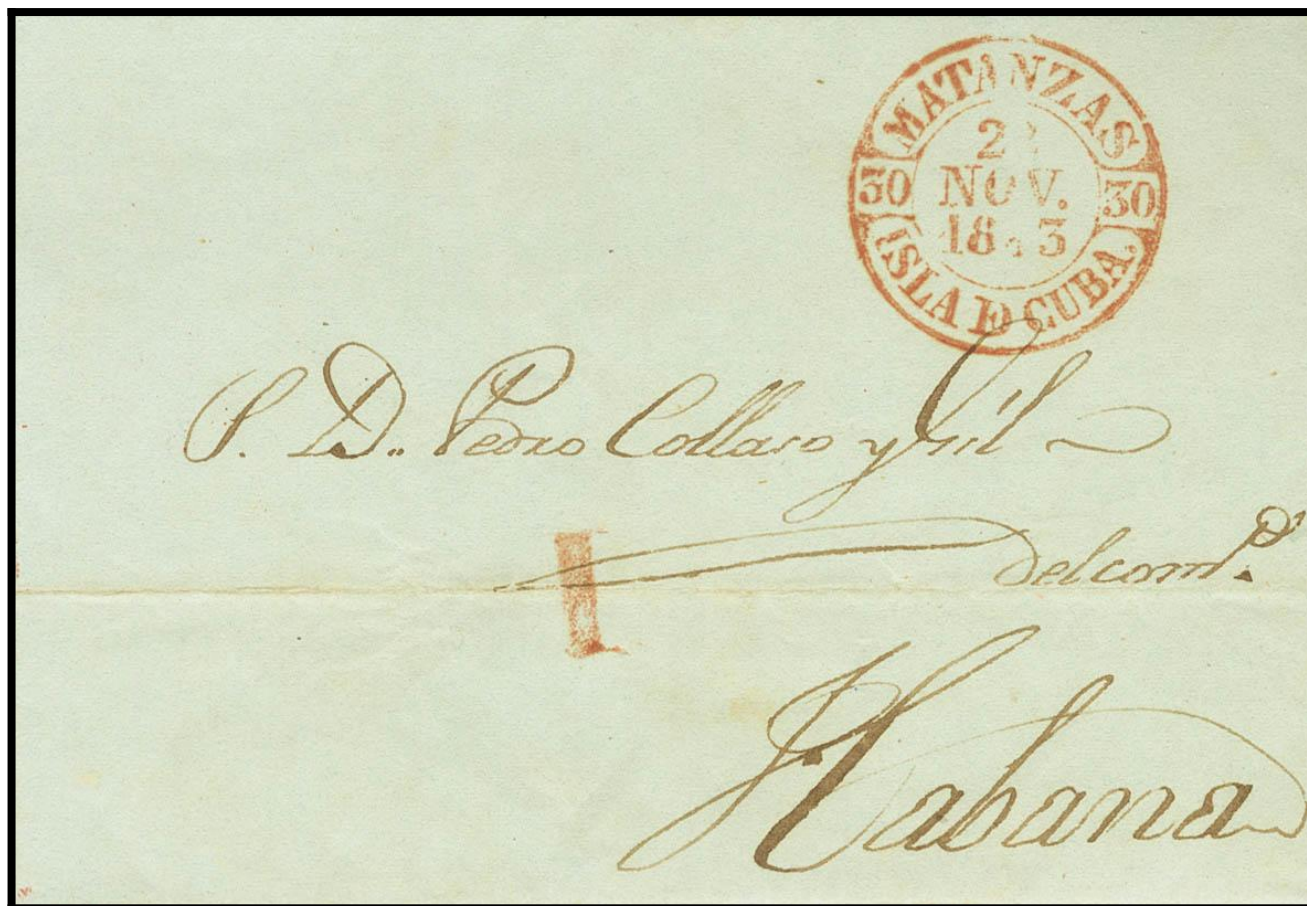 MATANZAS
NOV.
30 30
ISLA DE CUBA.
S. D. Pedro Collaso y Gil
del com.º
1
Habana